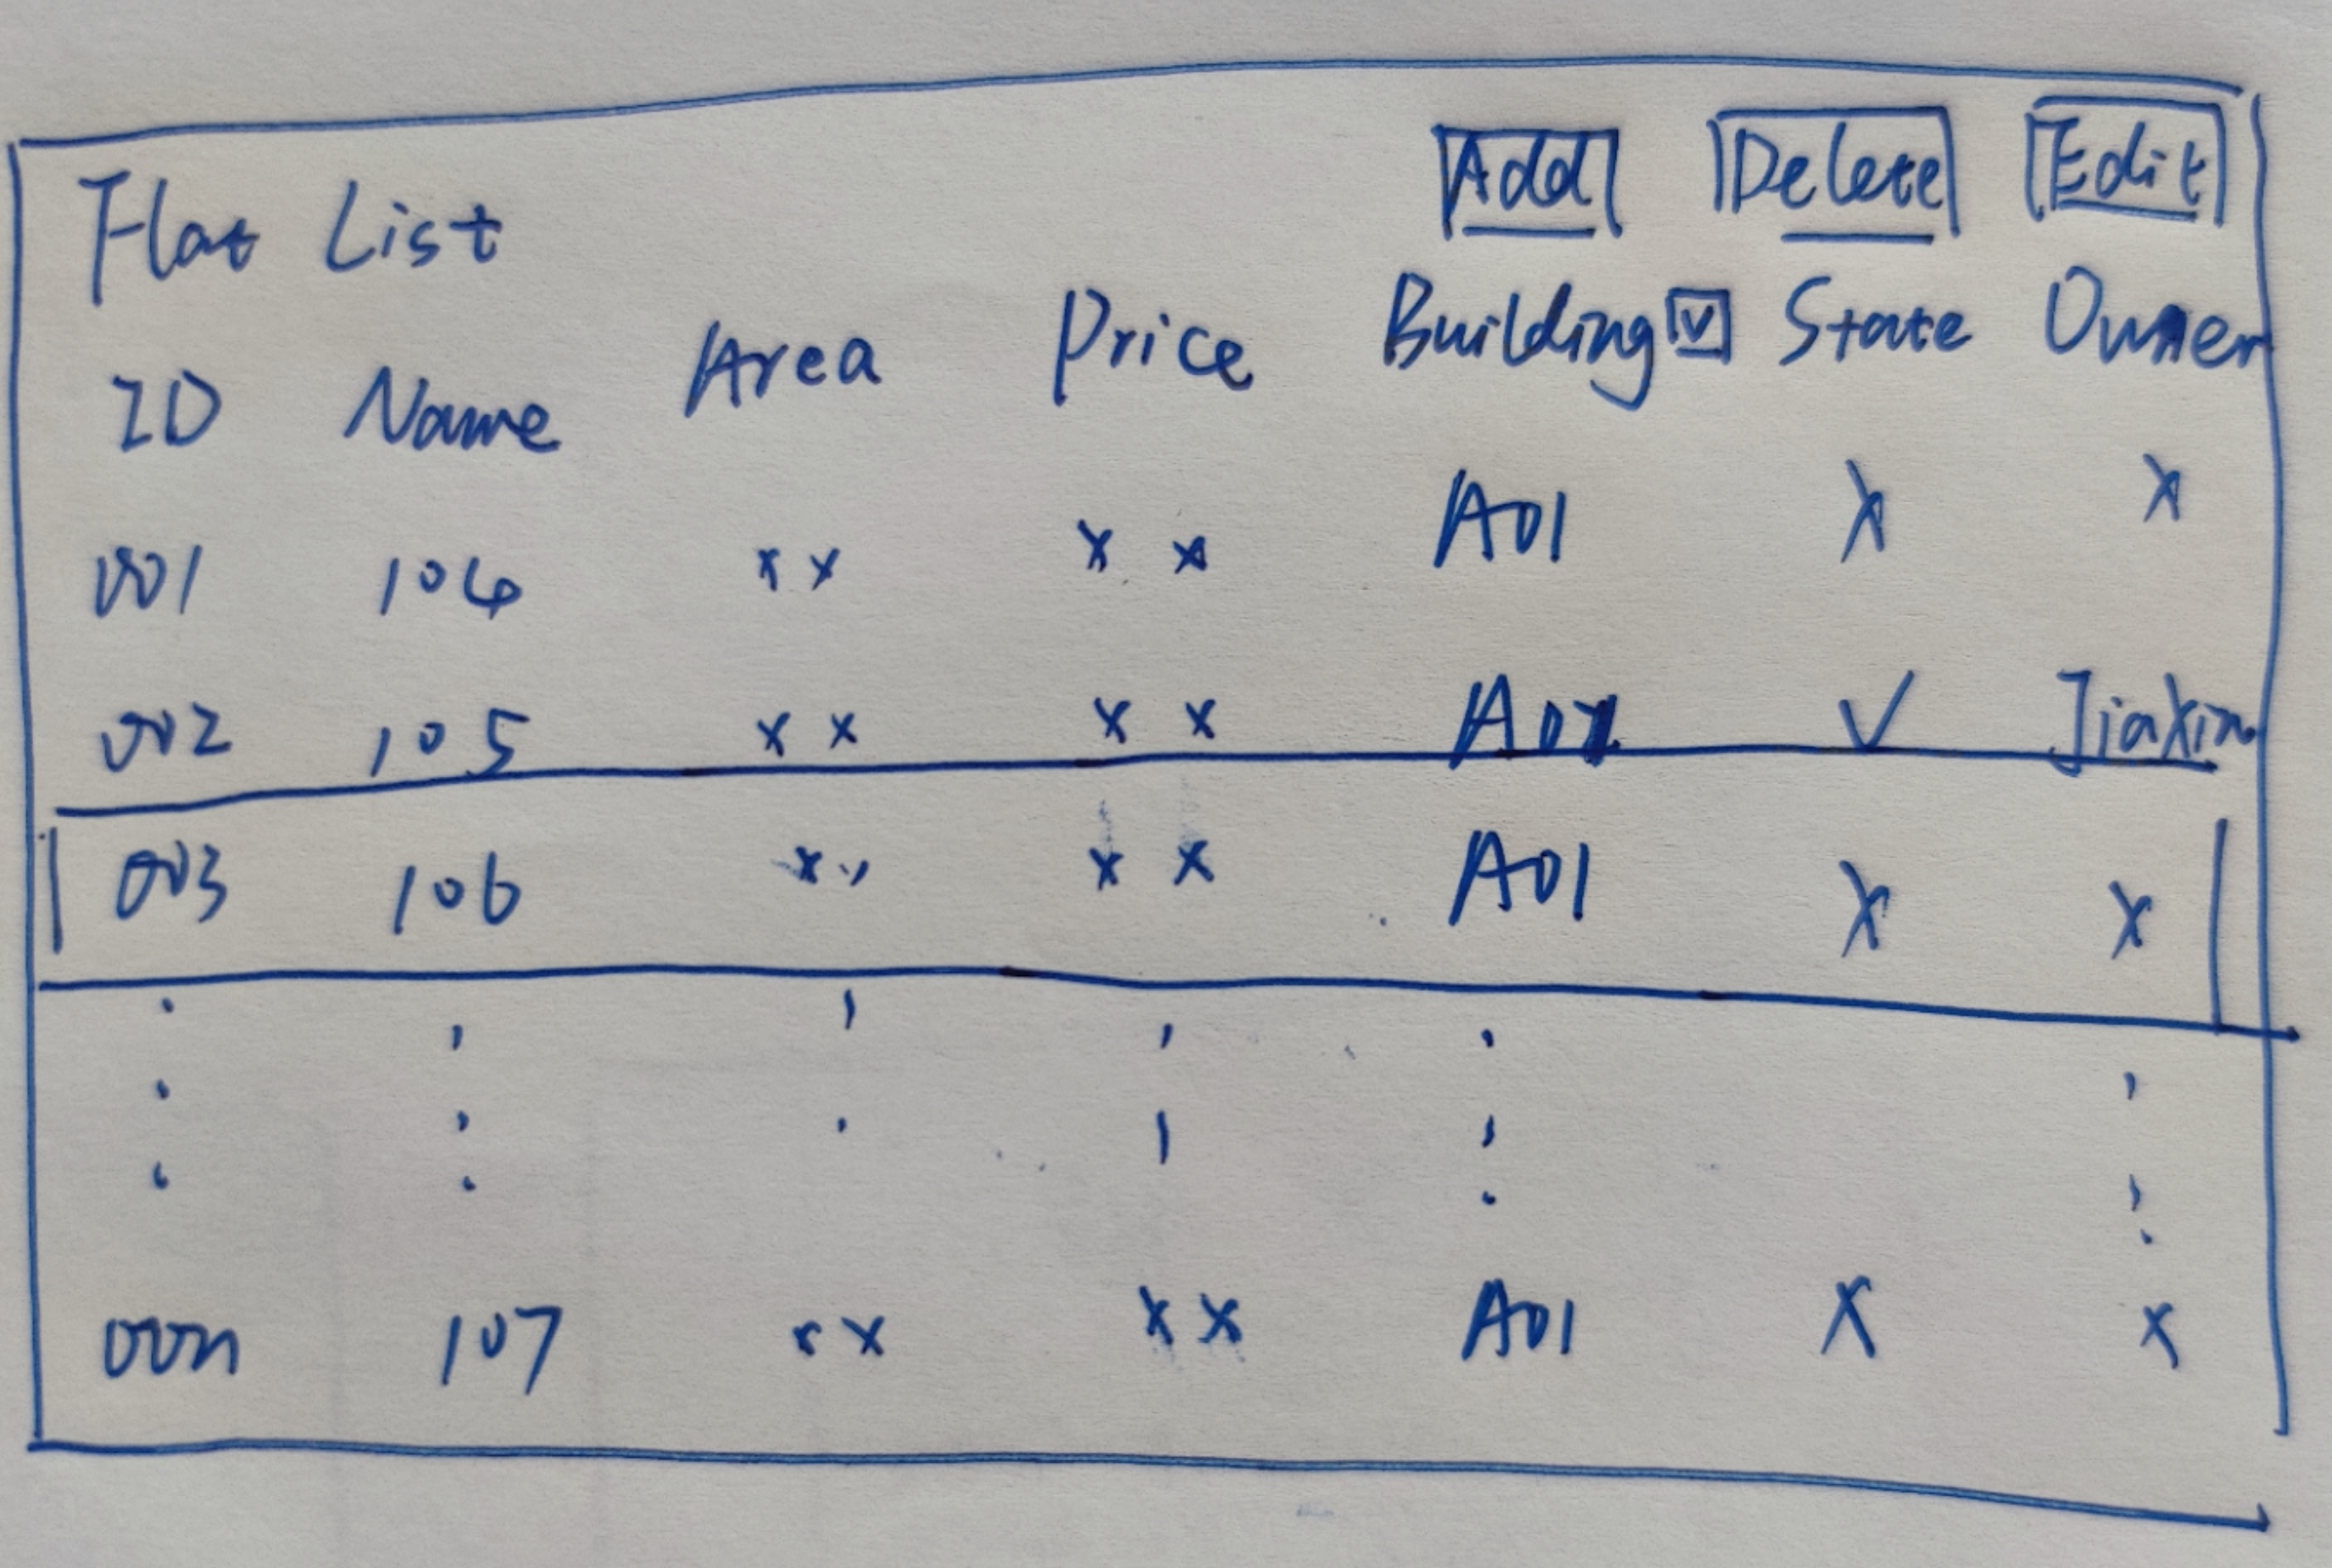 Flat List Add Delete Edit
ID Name Area Price Building State Owner
001 104 x x x x A01 X x
002 105 x x x x ✓ Jiaxin
003 106 x x x A01 X x
000n 107 x x x x A01 X x